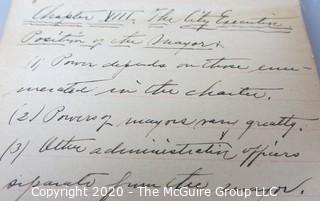 Chapter VIII. The City Executive
Position of the Mayor.
(1) Power depends on those enu-
merated in the charter.
(2) Powers of mayors vary greatly.
(3) Other administrative officers
separate from the mayor.
Copyright 2020 - The McGuire Group LLC